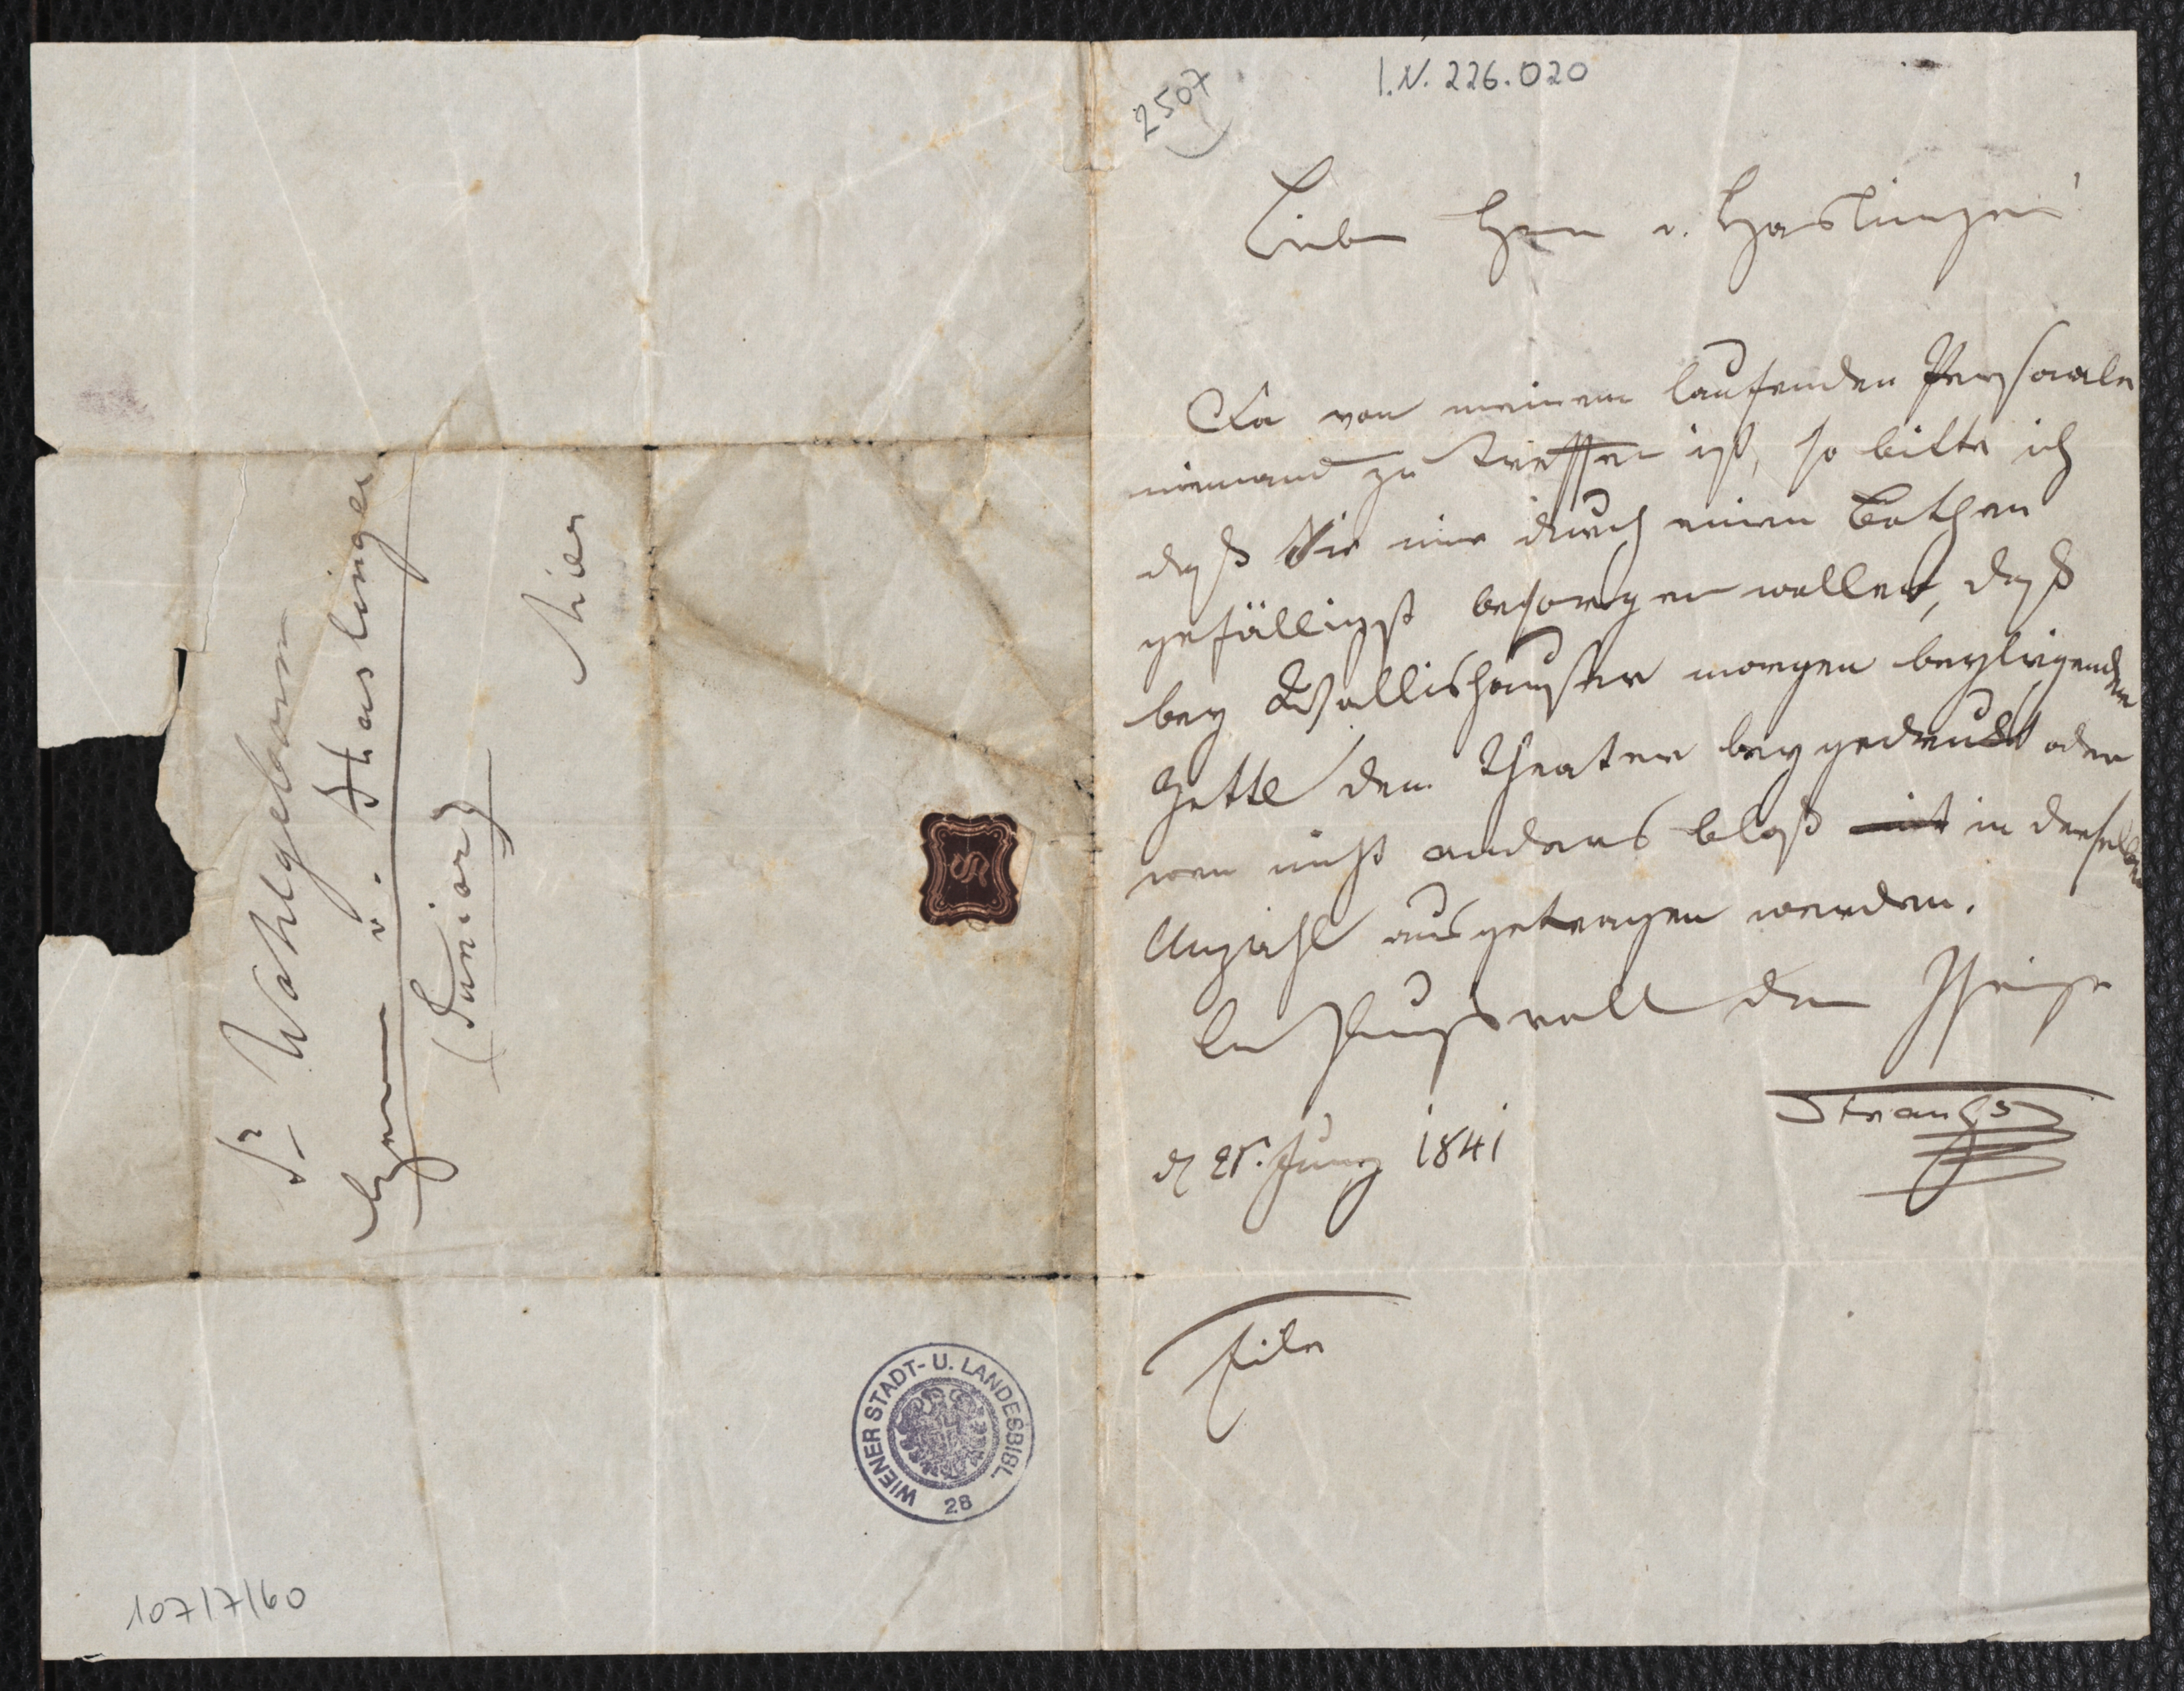 2507
I.N. 226.020
Lieber Herr v. Haslinger!
Da von meinem laufenden Persoale
niemand zu treffen ist, so bitte ich
daß Sie mir durch einen Bothen
gefälligst besorgen wollen, daß
bey Wallishausser morgen beyliegende
Zettl dem Theater beygedruckt oder
wen nicht anders bloß mit in derselben
Anzahl ausgetragen werden.
der Ihrige
Strauss
d 25. Juny 1841
Eile
Sr Wohlgeborn
Herrn v. Haslinger
(Junior)
hier
S
WIENER STADT- U. LANDESBIBL.
28
107/7/60